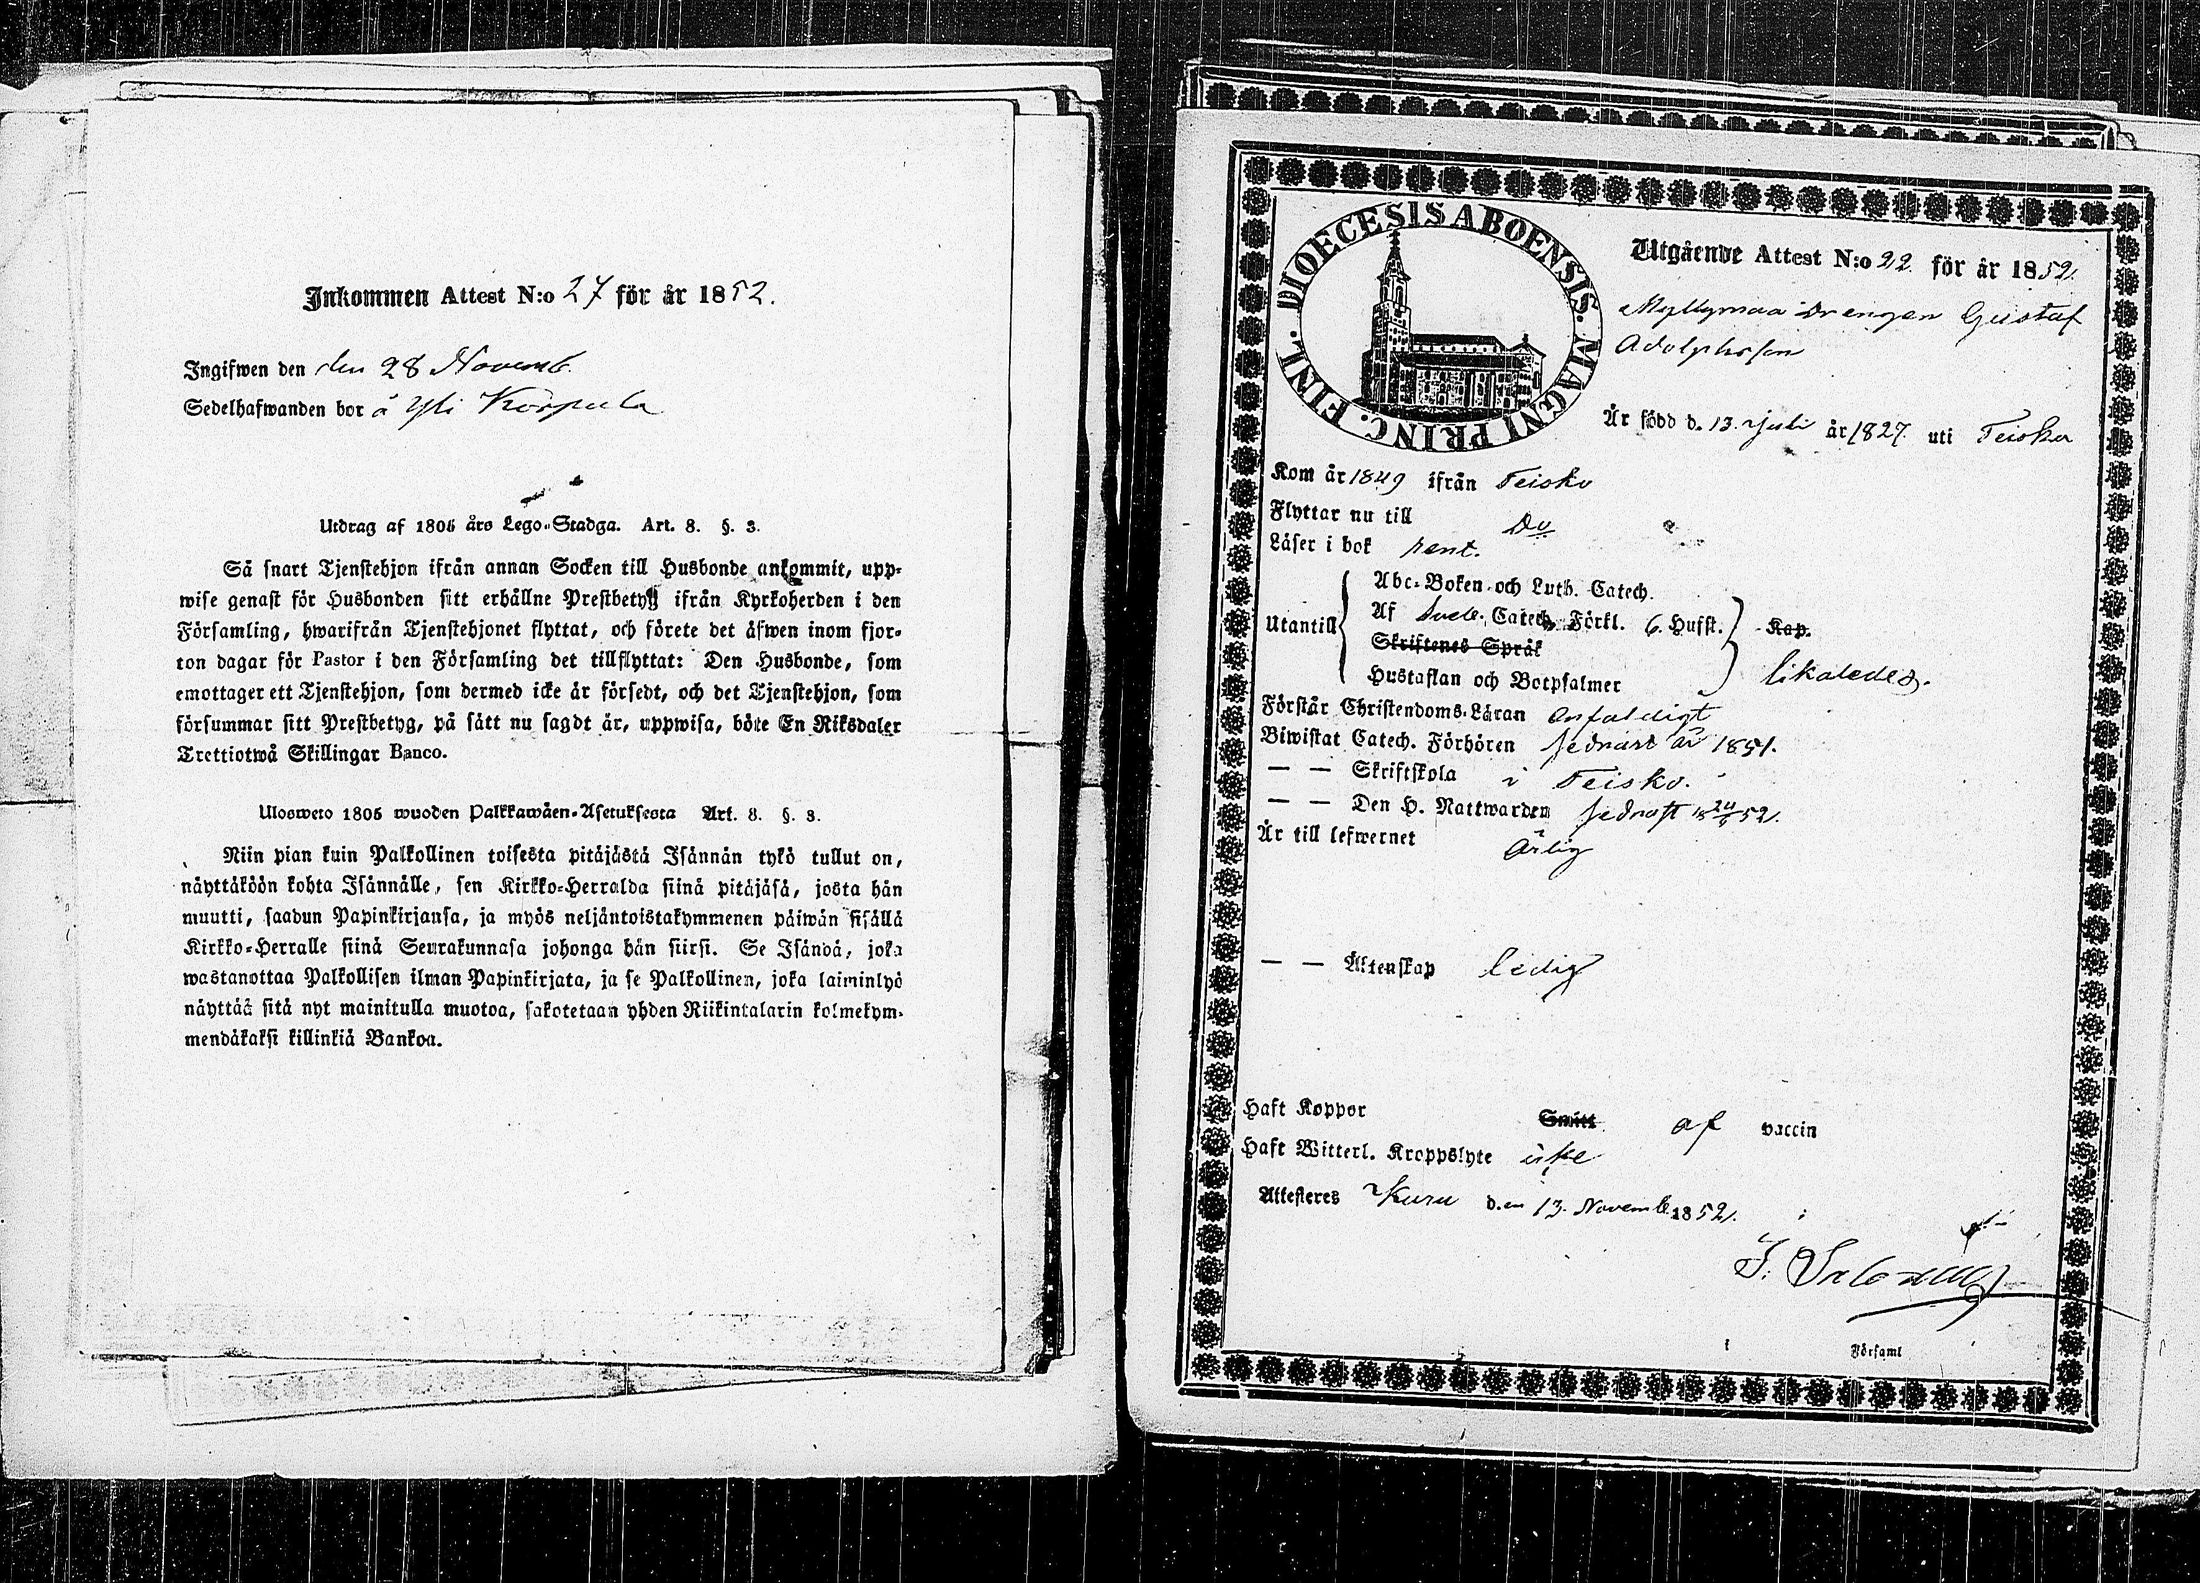 Inkommen Attest N:o 27 för år 1852.
Ingifwen den den 28 Novemb.
Sedelhafwanden bor å Yli Körpula
Utdrag af 1805 års Lego-Stadga. Art. 8. §. 3.
Så snart Tjenstehjon ifrån annan Socken till Husbonde ankommit, upp-
wise genast för Husbonden sitt erhållne Prestbetyg ifrån Kyrkoherden i den
Församling, hwarifrån Tjenstehjonet flyttat, och förete det äfwen inom fjor-
ton dagar för Pastor i den Församling det tillflyttat: Den Husbonde, som
emottager ett Tjenstehjon, som dermed icke är försedt, och det Tjenstehjon, som
försummar sitt Prestbetyg, på sätt nu sagdt är, uppwisa, böte En Riksdaler
Trettiotwå Skillingar Banco.
Ulosweto 1805 wuoden Palkkawäen-Asetuksesta Art. 8. §. 3.
Niin pian kuin Palkollinen toisesta pitäjästä Isännän tykö tullut on,
näyttäköön kohta Isännälle, sen Kirkko-Herralda siinä pitäjäsä, josta hän
muutti, saadun Papinkirjansa, ja myös neljäntoistakymmenen päiwän sisällä
Kirkko-Herralle siinä Seurakunnasa johonga hän siirsi. Se Isändä, joka
wastanottaa Palkollisen ilman Papinkirjata, ja se Palkollinen, joka laiminlyö
näyttää sitä nyt mainitulla muotoa, sakotetaan yhden Riikintalarin kolmekym-
mendäkaksi killinkiä Bankoa.
DIOECESIS ABOENSIS. MAGNI PRINC. FINL.
Utgående Attest N:o 22. för år 1852.
Myllymaa Drengen Gustaf
Adolphsson
Är född d. 13. Juli år 1827. uti Teisko
Kom år 1849 ifrån Teisko
Flyttar nu till Do
Läser i bok rent.
Utantill
Abc-Boken och Luth. Catech.
Af Sveb. Catech. Förkl. 6. Hufst. Kap.
Skriftenes Språk
Hustaflan och Botpsalmer likaledes.
Förstår Christendoms-Läran enfaldigt
Biwistat Catech. Förhören sednast år 1851.
— — Skriftskola i Teisko.
— — Den H. Nattwarden sednast 18 24/ 52.
Är till lefwernet Ärlig
— — Äktenskap ledig
Haft Koppor Smitt af vaccin
Haft Witterl. Kroppslyte icke
Attesteras Kuru den 13. Novemb. 1852.
Församl